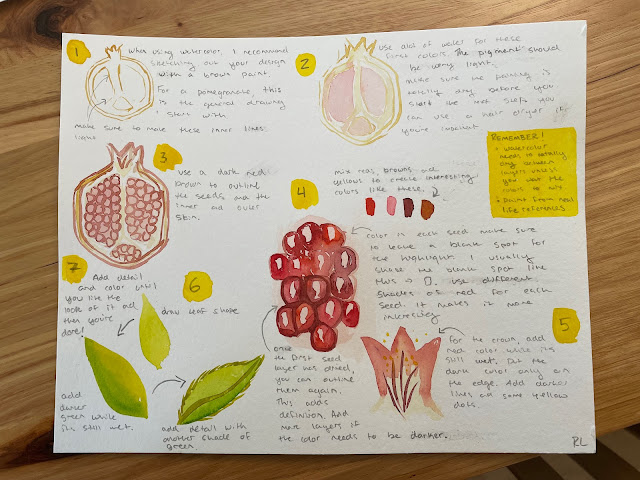 1
When using watercolor, I recommend
sketching out your design
with a brown paint.
For a pomegranate, this
is the general drawing
I start with
make sure to make these inner lines
2
use alot of water for these
first colors. The pigment should
be very light.
make sure the painting is
totally dry before you
start the next step. you
can use a hair dryer if
you're impatient
REMEMBER!
• watercolor
needs to totally
dry between
layers unless
you want the
colors to mix
• paint from real
life references
3
use a dark red
brown to outline
the seeds and the
inner ad outer
skin.
4
mix reds, browns and
yellows to create interesting
colors like these.
color in each seed. make sure
to leave a blank spot for
the highlight. I usually
shape the blank spot like
this → use different
shades of red for each
seed. It makes it more
interesting
once
the first seed
layer has dried,
you can outline
them again.
This adds
definition. Add
more layers if
the color needs to be darker.
5
For the crown, add
red color while its
still wet. Put the
dark color only on
the edge. Add darker
lines and some yellow
dots
6
draw leaf shape
add
darker
green while
its still wet.
add detail with
another shade of
green
7
Add detail
and color until
you like the
look of it all
then you're
done!
RL